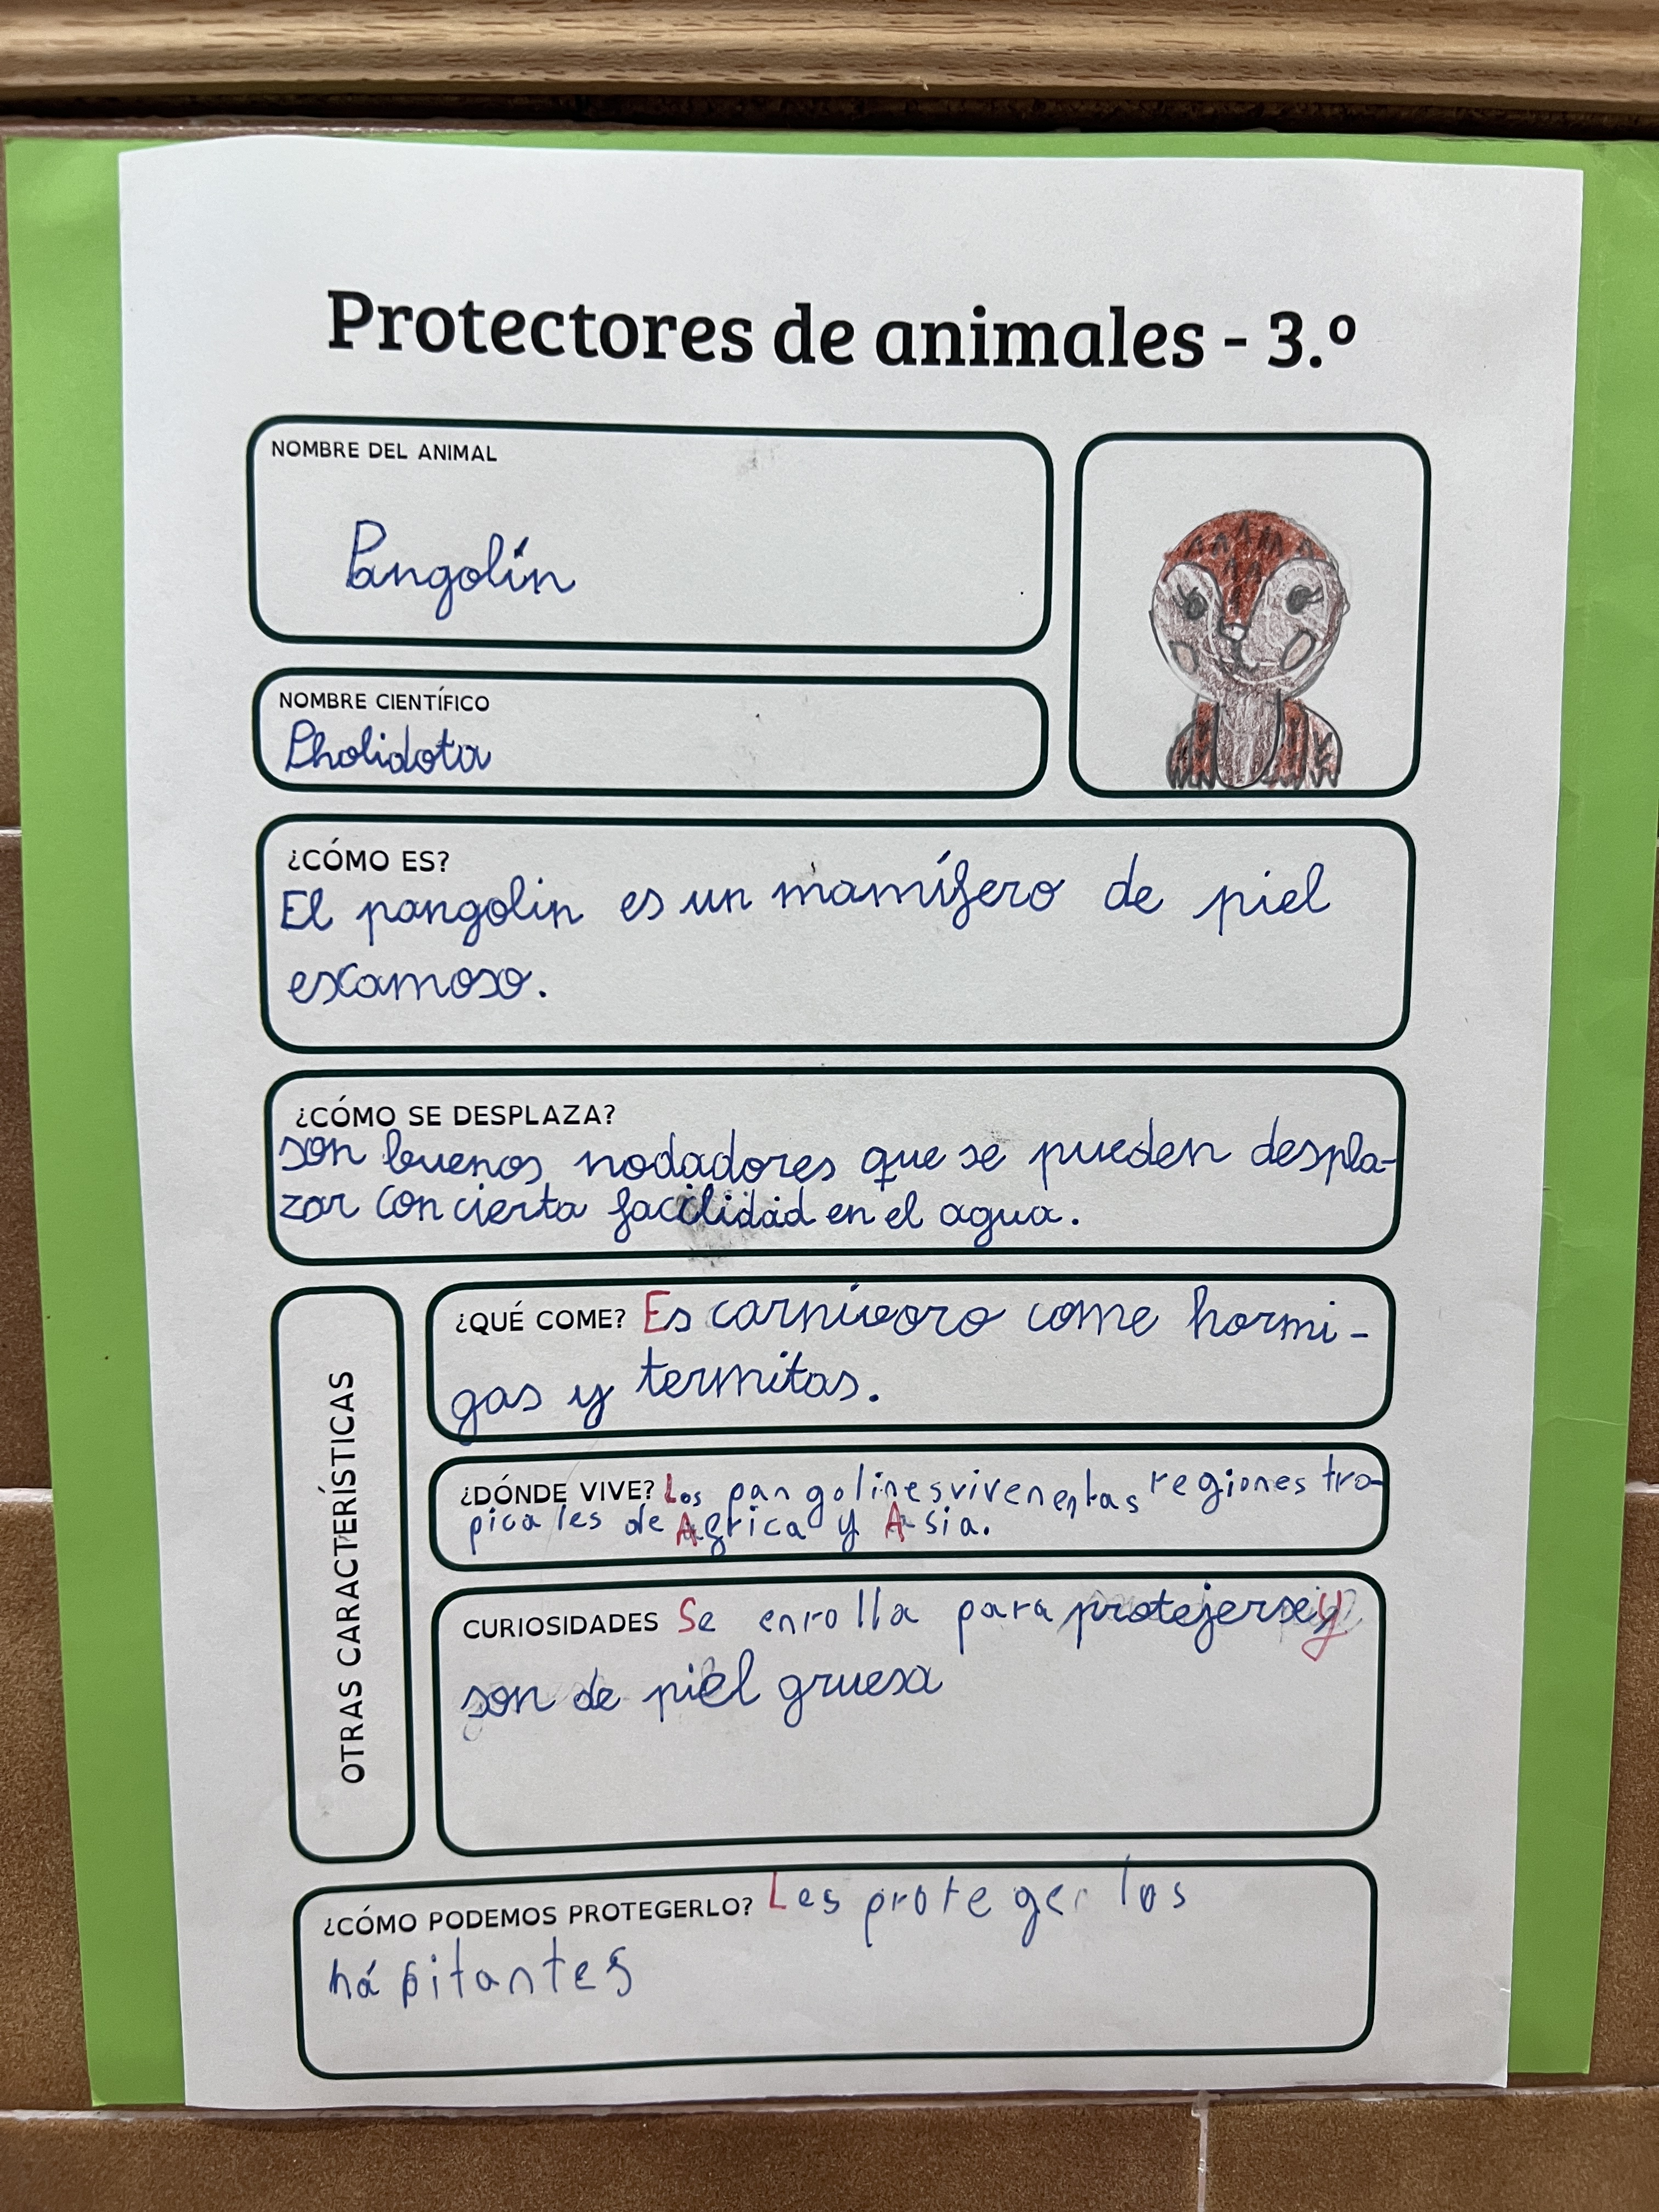 Protectores de animales - 3.º
NOMBRE DEL ANIMAL
Pangolín
NOMBRE CIENTÍFICO
Pholidota
¿CÓMO ES?
El pangolin es un mamífero de piel
escamoso.
¿CÓMO SE DESPLAZA?
son buenos nodadores que se pueden despla-
zar con cierta facilidad en el agua.
OTRAS CARACTERÍSTICAS
¿QUÉ COME? Es carnívoro come hormi-
gas y termitas.
¿DÓNDE VIVE? Los pangolines viven en las regiones tro-
picales de Africa y Asia.
CURIOSIDADES Se enrolla para protejerse y
son de piel gruesa
¿CÓMO PODEMOS PROTEGERLO? Les proteger los
hápitantes